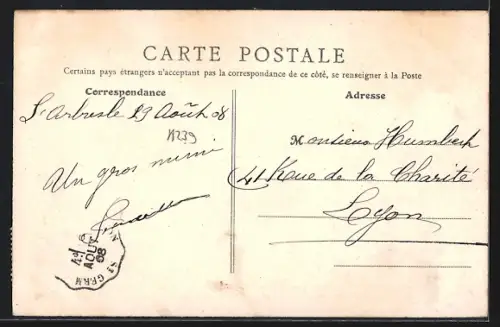 CARTE POSTALE
Certains pays étrangers n'acceptant pas la correspondance de ce côté, se renseigner à la Poste
Correspondance
L'Arbresle 29 Août 08
Un gros mimi
Adresse
Monsieur Humbert
41 Rue de la Charité
Lyon
AOUT
08
St GERM